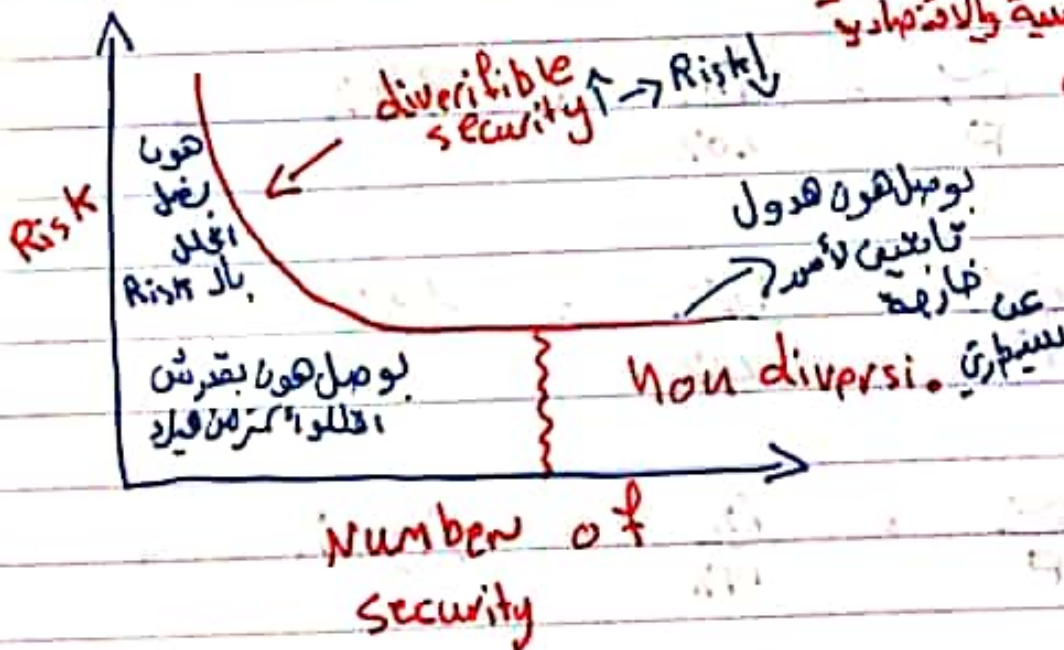 والاقتصادية
diverifible
security↑ → Risk↓
Risk
هون
بضل
اقلل
بال Risk
بوصل هون هدول
ثابتين لأمور
خارجة
عن
سيطرتي
بوصل هون بقدرش
اقللو أكثر من هيك
Non diversi.
Number of
security